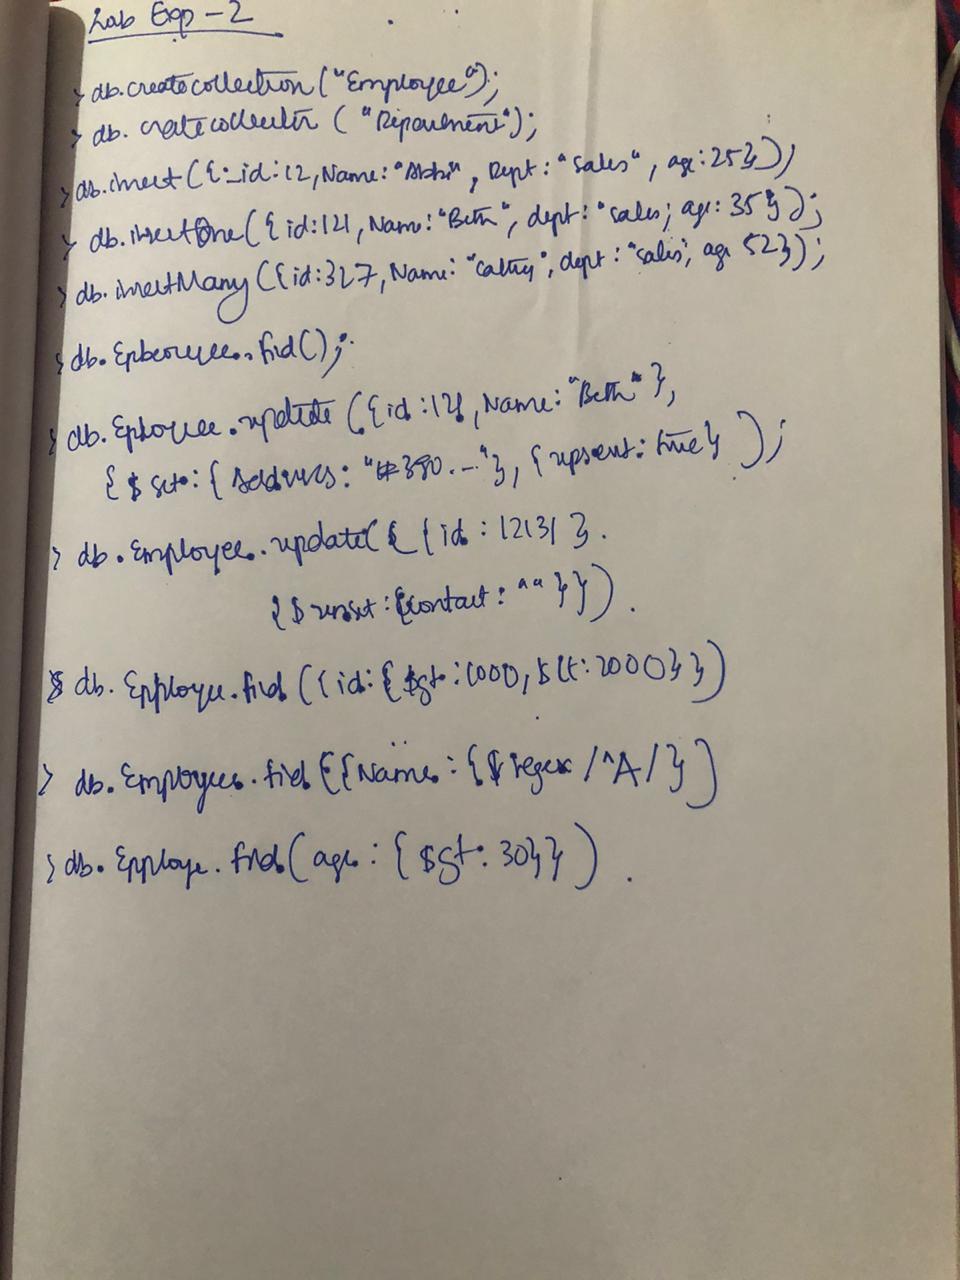 Lab Exp - 2
> db.createcollection ("Employee");
> db. cratecollectin ( "Ripartment");
> db.insert ({_id:12, Name: "Abhi", Dept: "Sales", age:25});
> db.insertOne ({id:121, Name: "Beth", dept: "sales; age: 35});
> db.insertMany ({id:327, Name: "Cathy", dept: "sales", age 52});
> db. .find();
> db. .update ({id:121, Name: "Beth"},
{$ set: {Address: "#380.--"}, {upsert: true} );
> db. Employee. update({ {id : 12131 }.
{$ unset : {contact : "" }})
> db. Epploye.find ({id: {$gt: 1000, $lt: 2000}})
> db. Employee. find ({Name : {$ regex /^A/})
> db. Epploye. find (age : {$gt: 30}} ) .